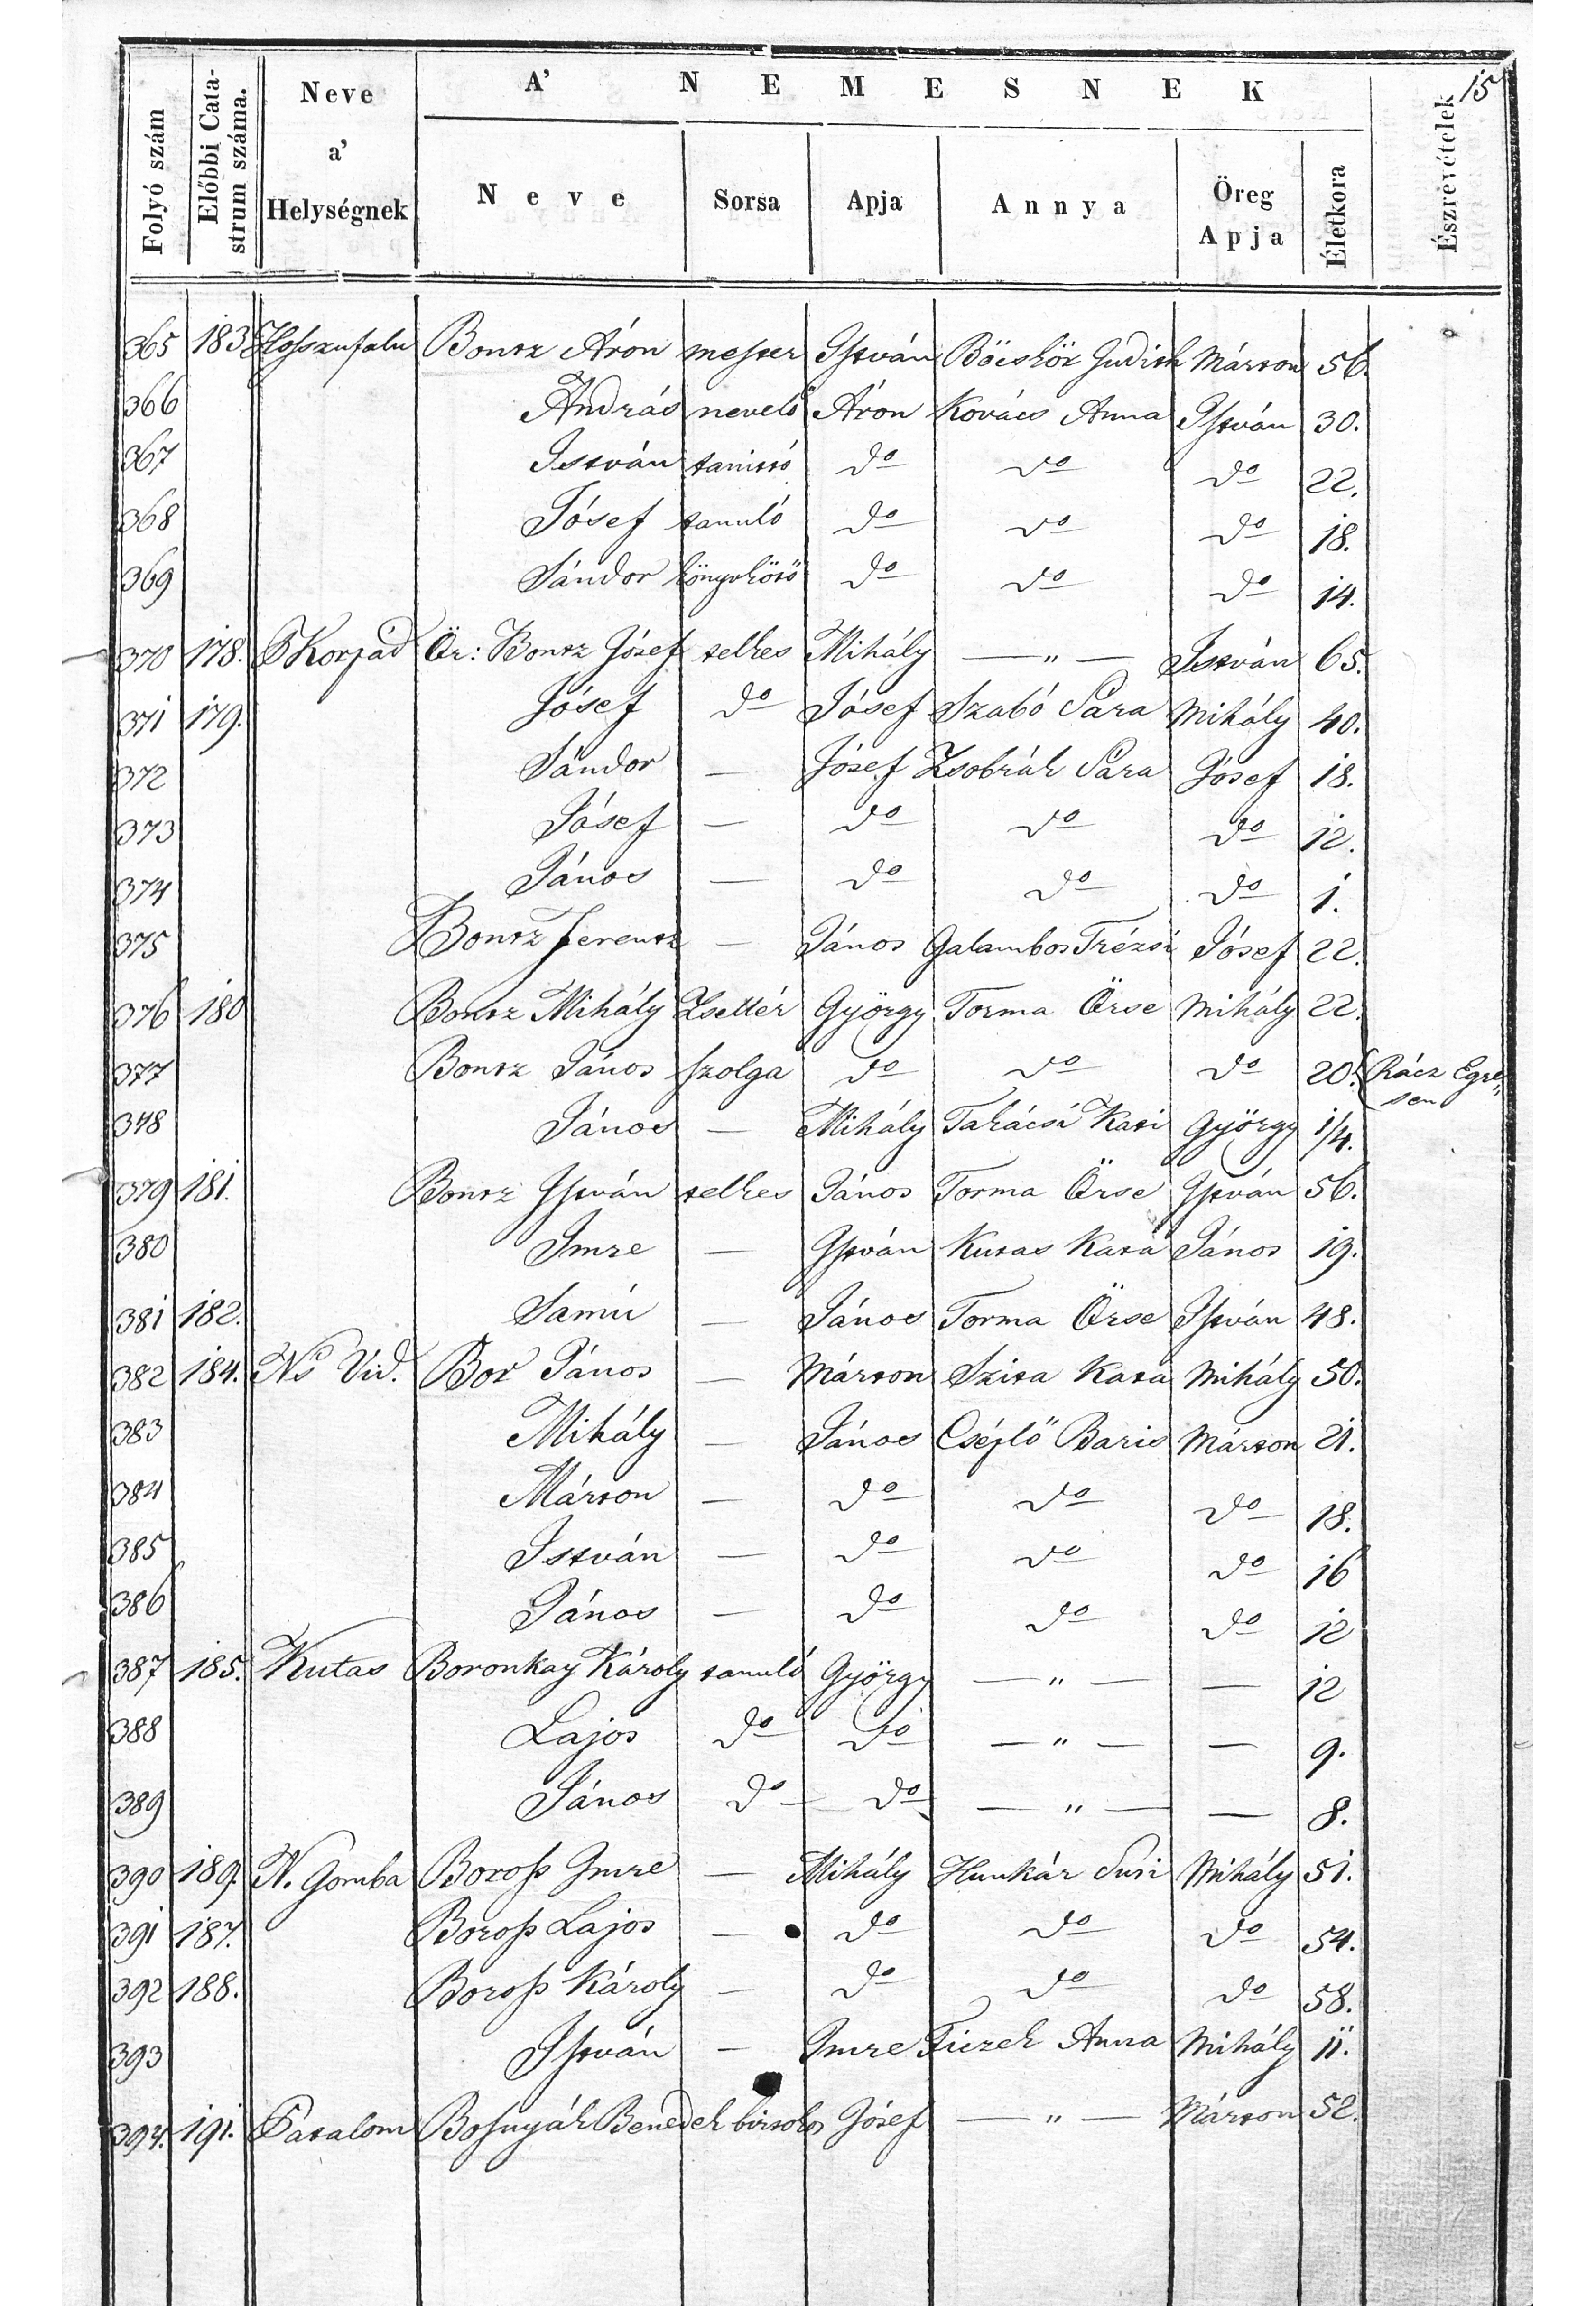 15
A' NEMESNEK
Folyó szám | Előbbi Catastrum száma. | Neve a' Helységnek | Neve | Sorsa | Apja | Annya | Öreg Apja | Életkora | Észrevételek
365 183 Hosszufalu Bontz Áron mester István Böcskör Judith Márton 56.
366 András nevelő Áron Kovács Anna István 30.
367 István tanittó do do do 22.
368 Jósef tanuló do do do 18.
369 Sándor könyvkötő do do do 14.
370 178. Korpád Ör: Bontz Jósef telkes Mihály — " — István 65.
371 179. Jósef do Jósef Szabó Sára Mihály 40.
372 Sándor — Jósef Zsobrák Sára Jósef 18.
373 Jósef — do do do 12.
374 János — do do do 1.
375 Bontz Ferentz — János Galambos Trézsi Jósef 22.
376 180 Bontz Mihály Zsellér György Torma Örse Mihály 22.
377 Bontz János szolga do do do 20. Rácz Egre„sen
378 János — Mihály Takácsi Kati György 1/4.
379 181. Bontz István telkes János Torma Örse István 56.
380 Imre — István Kutas Kata János 19.
381 182. Samú — János Torma Örse István 48.
382 184. Ns Vid. Bor János — Márton Szita Kata Mihály 50.
383 Mihály — János Cséplő Baris Márton 21.
384 Márton — do do do 18.
385 István — do do do 16
386 János — do do do 12
387 185. Kutas Boronkay Károly tanuló György — " — — 12
388 Lajos do do — " — — 9.
389 János do do — " — — 8.
390 189. N. Gomba Boross Imre — Mihály Hunkár Susi Mihály 51.
391 187. Boross Lajos — do do do 54.
392 188. Boross Károly — do do do 58.
393 István — Imre Ficzek Anna Mihály 11.
394. 191. Patalom Bosnyák Benedek birtokos Jósef — " — Márton 52.